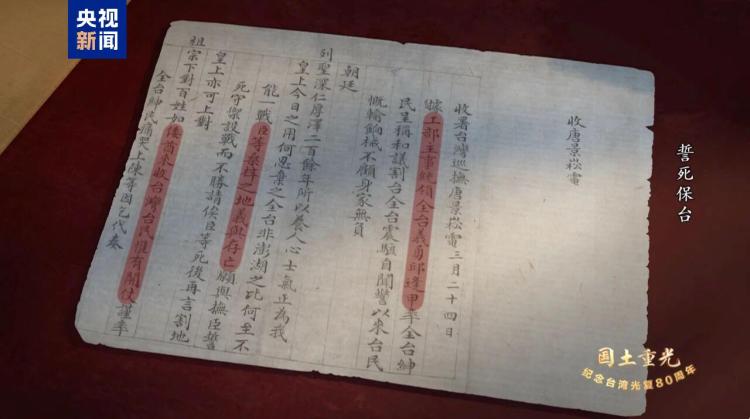 央视
新闻
誓死保台
收唐景崧電
收署台灣巡撫唐景崧電三月二十四日
據工部主事統領全台義勇邱逢甲率全台紳
民呈稱和議割台全台震駭自聞警以來台民
慨輸餉械不顧身家無負
朝廷
列聖深仁厚澤二百餘年所以養人心士氣正為我
皇上今日之用何忍棄之全台非澎湖之比何至不
能一戰臣等桑梓之地義與存亡願與撫臣誓
死守禦設戰而不勝請俟臣等死後再言割地
皇上亦可上對
祖宗下對百姓如倭酋來收台灣台民惟有開仗謹率
全台紳民痛哭上陳等因乞代奏
国土重光
纪念台湾光复80周年